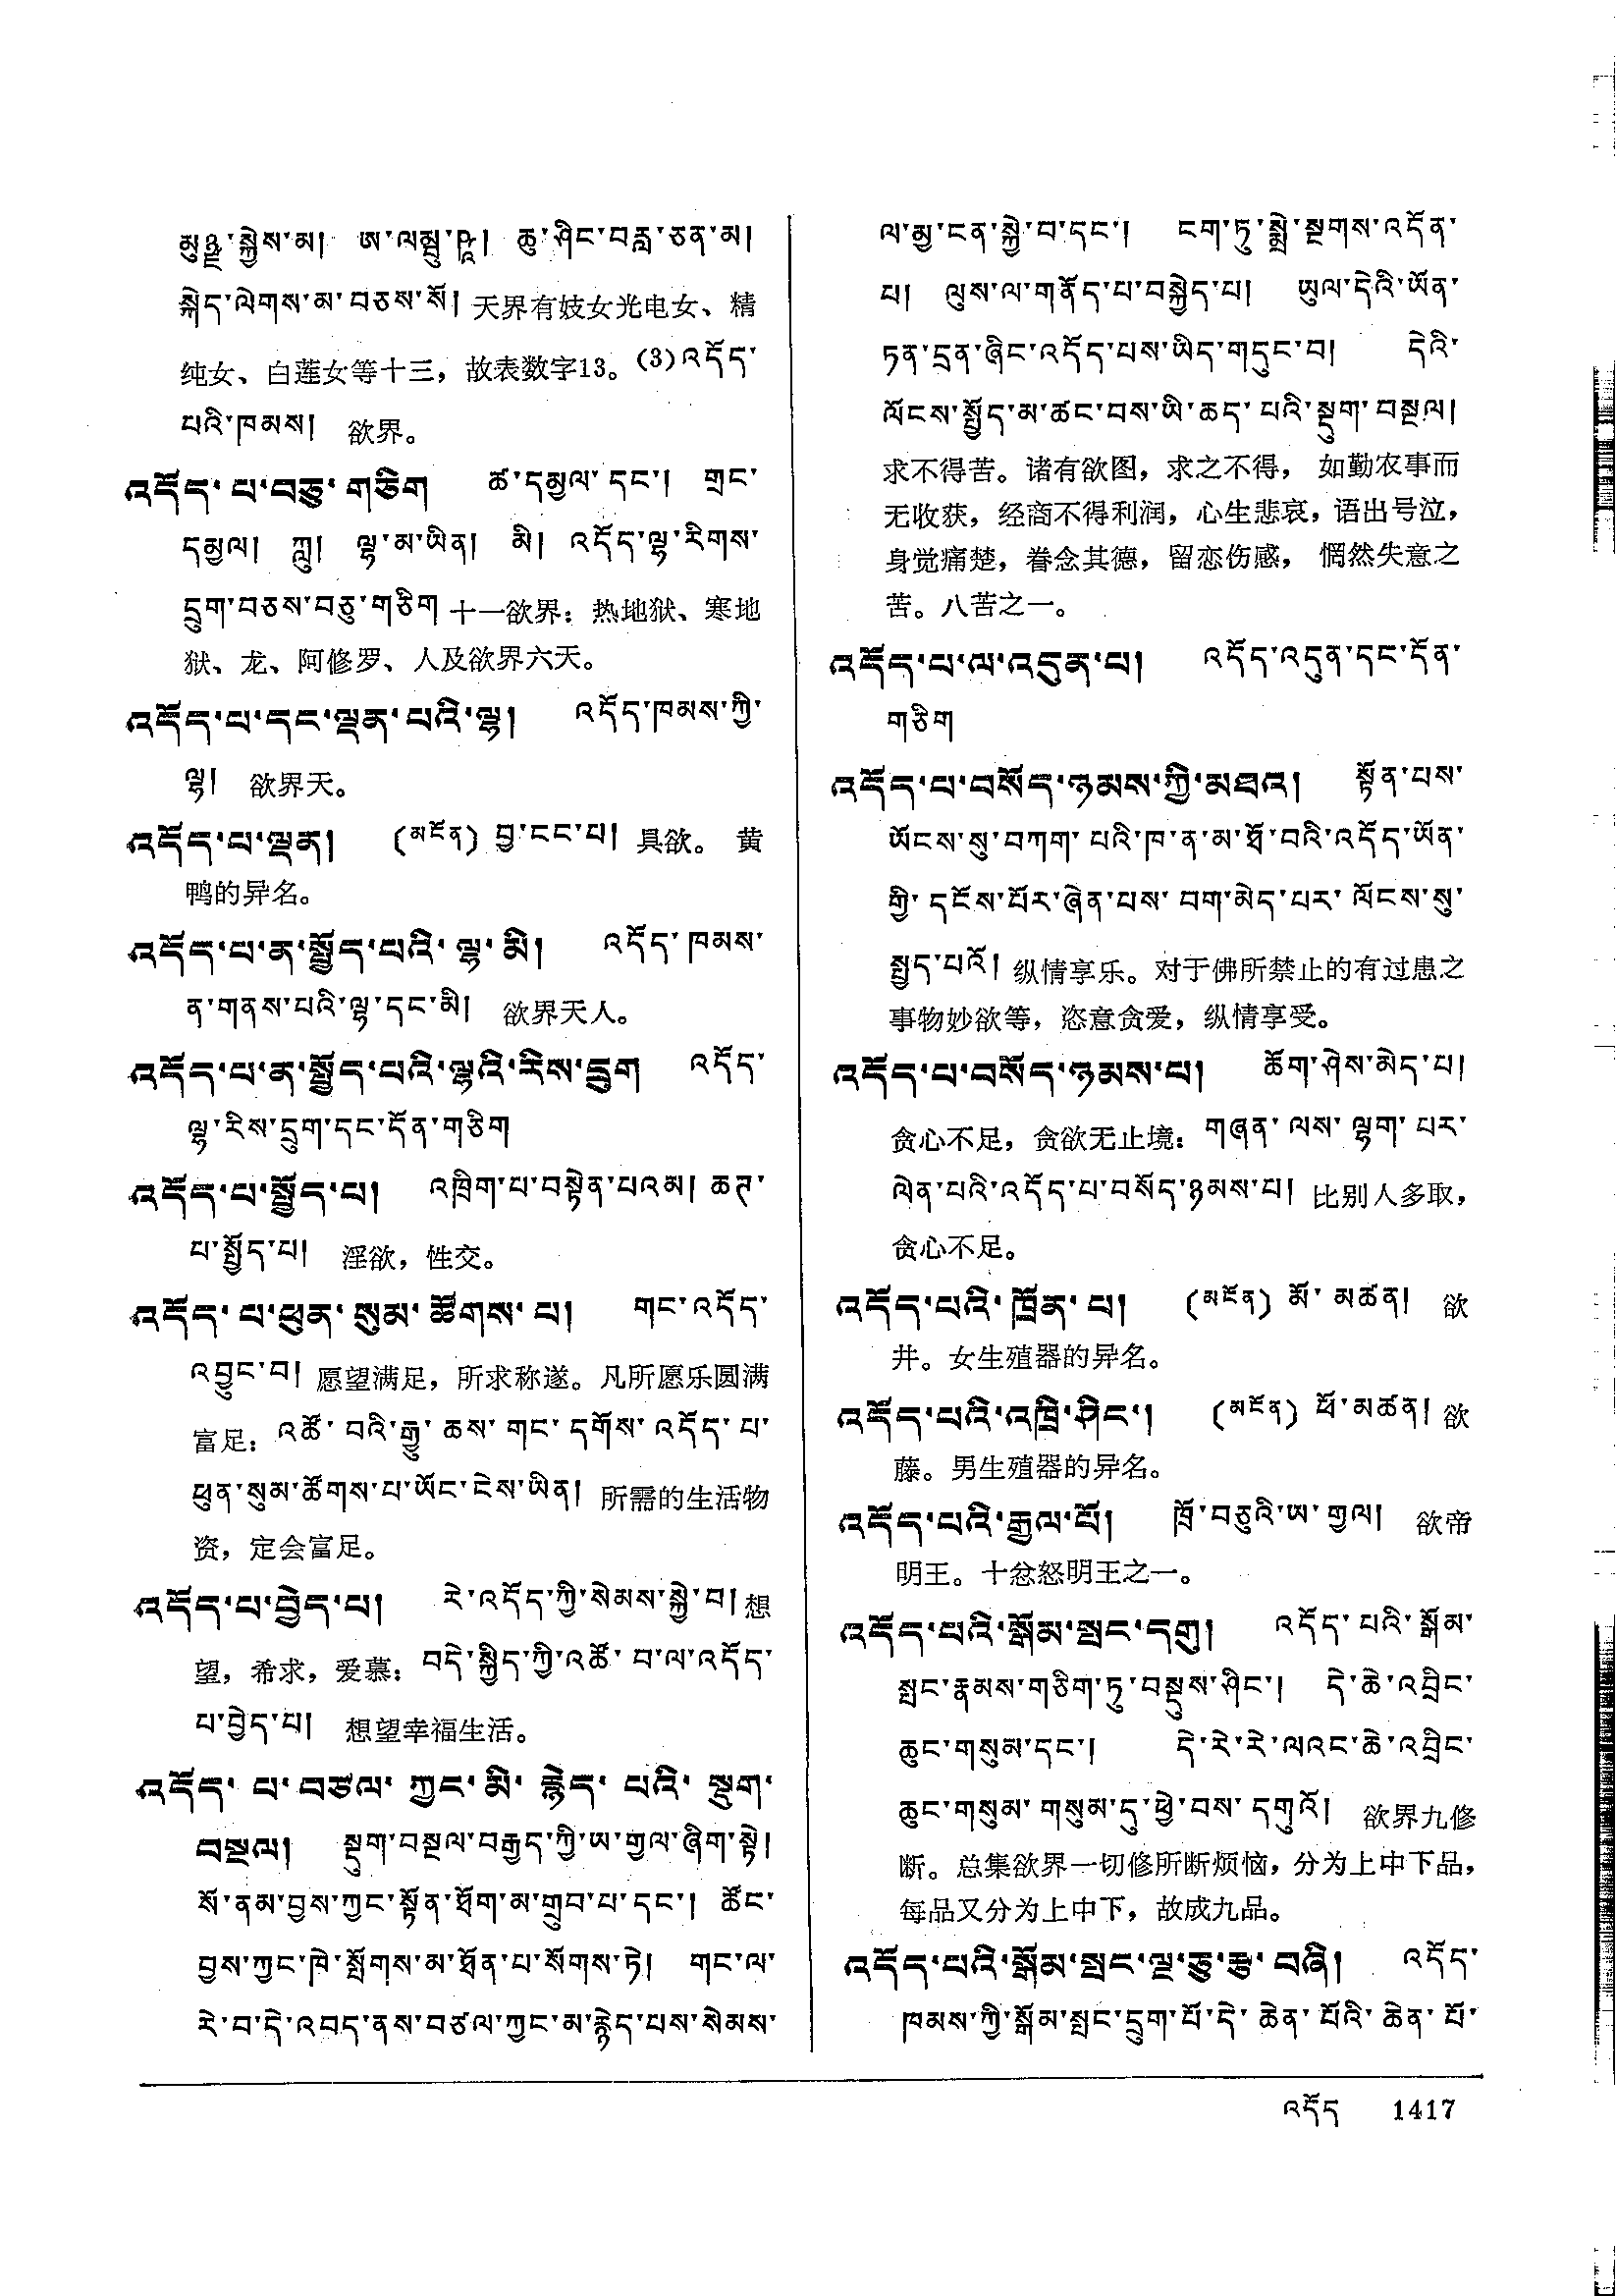 མུཉྫ་སྐྱེས་མ། ཨ་ལམྦུ་ཥཱ། ཆུ་ཤིང་བརླ་ཅན་མ།
སྐེད་ལེགས་མ་བཅས་སོ། 天界有妓女光电女、精
纯女、白莲女等十三，故表数字13。(3)འདོད་
པའི་ཁམས། 欲界。
འདོད་པ་བཅུ་གཅིག ཚ་དམྱལ་དང་། གྲང་
དམྱལ། ཀླུ། ལྷ་མ་ཡིན། མི། འདོད་ལྷ་རིགས་
དྲུག་བཅས་བཅུ་གཅིག 十一欲界：热地狱、寒地
狱、龙、阿修罗、人及欲界六天。
འདོད་པ་དང་ལྡན་པའི་ལྷ། འདོད་ཁམས་ཀྱི་
ལྷ། 欲界天。
འདོད་པ་ལྡན། (མངོན) བྱ་ངང་པ། 具欲。 黄
鸭的异名。
འདོད་པ་ན་སྤྱོད་པའི་ལྷ་མི། འདོད་ཁམས་
ན་གནས་པའི་ལྷ་དང་མི། 欲界天人。
འདོད་པ་ན་སྤྱོད་པའི་ལྷའི་རིས་དྲུག འདོད་
ལྷ་རིས་དྲུག་དང་དོན་གཅིག
འདོད་པ་སྤྱོད་པ། འཁྲིག་པ་བསྟེན་པའམ། ཆགས་
པ་སྤྱོད་པ། 淫欲，性交。
འདོད་པ་ཕུན་སུམ་ཚོགས་པ། གང་འདོད་
འབྱུང་བ། 愿望满足，所求称遂。凡所愿乐圆满
富足：འཚོ་བའི་རྒྱུ་ཆས་གང་དགོས་འདོད་པ་
ཕུན་སུམ་ཚོགས་པ་ཡོང་ངེས་ཡིན། 所需的生活物
资，定会富足。
འདོད་པ་བྱེད་པ། རེ་འདོད་ཀྱི་སེམས་སྐྱེ་བ། 想
望，希求，爱慕：བདེ་སྐྱིད་ཀྱི་འཚོ་བ་ལ་འདོད་
པ་བྱེད་པ། 想望幸福生活。
འདོད་པ་བཙལ་ཀྱང་མི་རྙེད་པའི་སྡུག་
བསྔལ། སྡུག་བསྔལ་བརྒྱད་ཀྱི་ཨ་གྱལ་ཞིག་སྟེ།
སོ་ནམ་བྱས་ཀྱང་སྟོན་ཐོག་མ་གྲུབ་པ་དང་། ཚོང་
བྱས་ཀྱང་ཁེ་སྤོགས་མ་ཐོན་པ་སོགས་ཏེ། གང་ལ་
རེ་བ་དེ་འབད་ནས་བཙལ་ཀྱང་མ་རྙེད་པས་སེམས་
ལ་མྱ་ངན་སྐྱེ་བ་དང་། ངག་ཏུ་སྨྲེ་སྔགས་འདོན་
པ། ལུས་ལ་གནོད་པ་བསྐྱེད་པ། ཡུལ་དེའི་ཡོན་
ཏན་དྲན་ཞིང་འདོད་པས་ཡིད་གདུང་བ། དེའི་
ལོངས་སྤྱོད་མ་ཚང་བས་ཡི་ཆད་པའི་སྡུག་བསྔལ།
求不得苦。诸有欲图，求之不得， 如勤农事而
无收获，经商不得利润，心生悲哀，语出号泣，
身觉痛楚，眷念其德，留恋伤感， 惘然失意之
苦。八苦之一。
འདོད་པ་ལ་འདུན་པ། འདོད་འདུན་དང་དོན་
གཅིག
འདོད་པ་བསོད་ཉམས་ཀྱི་མཐའ། སྟོན་པས་
ཡོངས་སུ་བཀག་པའི་ཁ་ན་མ་ཐོ་བའི་འདོད་ཡོན་
གྱི་དངོས་པོར་ཞེན་པས་བག་མེད་པར་ལོངས་སུ་
སྤྱད་པའོ། 纵情享乐。对于佛所禁止的有过患之
事物妙欲等，恣意贪爱，纵情享受。
འདོད་པ་བསོད་ཉམས་པ། ཆོག་ཤེས་མེད་པ།
贪心不足，贪欲无止境：གཞན་ལས་ལྷག་པར་
ལེན་པའི་འདོད་པ་བསོད་ཉམས་པ། 比别人多取，
贪心不足。
འདོད་པའི་ཁྲོན་པ། (མངོན) མོ་མཚན། 欲
井。女生殖器的异名。
འདོད་པའི་འཁྲི་ཤིང་། (མངོན) ཕོ་མཚན། 欲
藤。男生殖器的异名。
འདོད་པའི་རྒྱལ་པོ། ཁྲོ་བཅུའི་ཨ་གྱལ། 欲帝
明王。十忿怒明王之一。
འདོད་པའི་སྒོམ་སྤང་དགུ། འདོད་པའི་སྒོམ་
སྤང་རྣམས་གཅིག་ཏུ་བསྡུས་ཤིང་། དེ་ཆེ་འབྲིང་
ཆུང་གསུམ་དང་། དེ་རེ་རེ་ལའང་ཆེ་འབྲིང་
ཆུང་གསུམ་གསུམ་དུ་ཕྱེ་བས་དགུའོ། 欲界九修
断。总集欲界一切修所断烦恼，分为上中下品，
每品又分为上中下，故成九品。
འདོད་པའི་སྒོམ་སྤང་ལྔ་ཅུ་རྩ་བཞི། འདོད་
ཁམས་ཀྱི་སྒོམ་སྤང་དྲུག་པོ་དེ་ཆེན་པོའི་ཆེན་པོ་
འདོད 1417